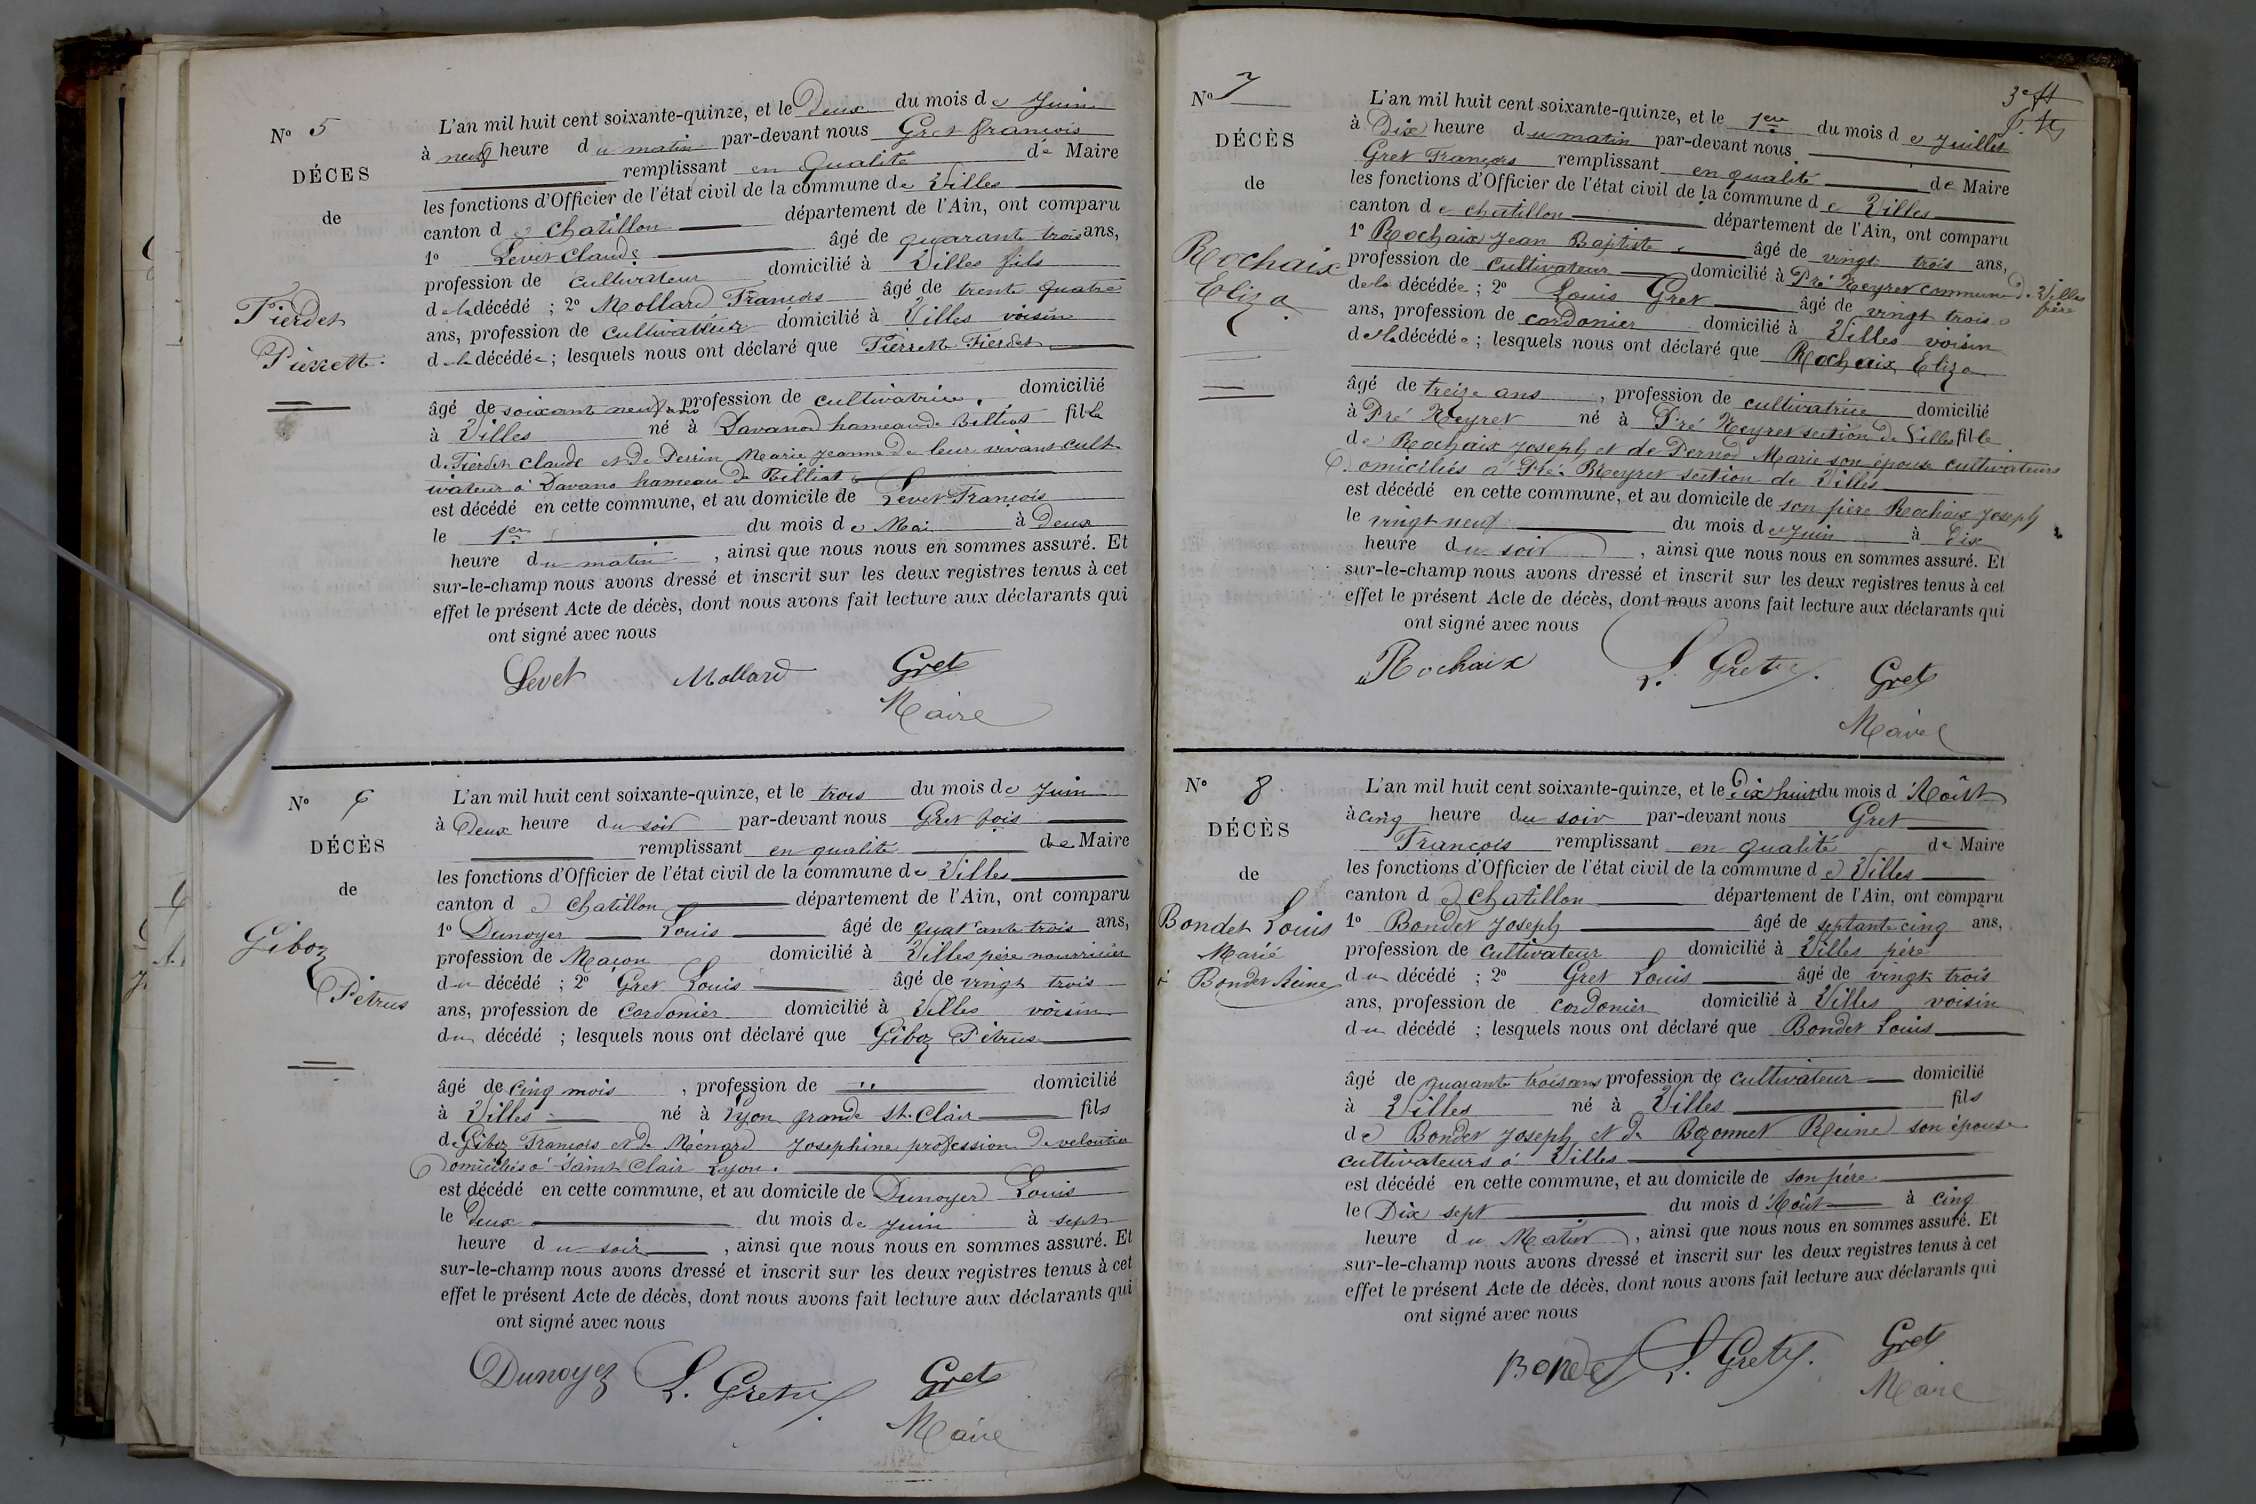 N° 5
DÉCES
de
Fierdet
Pierrette
L'an mil huit cent soixante-quinze, et le Deux du mois de Juin
à neuf heure du matin par-devant nous Gret françois
remplissant en qualité de Maire
les fonctions d'Officier de l'état civil de la commune de Villes
canton de Chatillon département de l'Ain, ont comparu
1° Levet Claude âgé de quarante trois ans,
profession de cultivateur domicilié à Villes fils
de la décédé ; 2° Mollard François âgé de trente quatre
ans, profession de cultivateur domicilié à Villes voisin
de la décédée ; lesquels nous ont déclaré que Pierrette Fierdet
âgé de soixante neuf ans profession de cultivatrice domicilié
à Villes né à Davanod hameau de Billiat fille
de Fierdet Claude et de Perrin Marie Jeanne de leur vivant cult
ivateur à Davano hameau de Billiat
est décédé en cette commune, et au domicile de Levet François
le 1er du mois de Mai à Deux
heure du matin, ainsi que nous nous en sommes assuré. Et
sur-le-champ nous avons dressé et inscrit sur les deux registres tenus à cet
effet le présent Acte de décès, dont nous avons fait lecture aux déclarants qui
ont signé avec nous
Levet Mollard Gret
Maire
N° 6
DÉCÈS
de
Giboz
Pétrus
L'an mil huit cent soixante-quinze, et le trois du mois de Juin
à Deux heure du soir par-devant nous Gret fois
remplissant en qualité de Maire
les fonctions d'Officier de l'état civil de la commune de Villes
canton de Chatillon département de l'Ain, ont comparu
1° Dunoyer Louis âgé de quarante trois ans,
profession de Maçon domicilié à Villes père nourricier
du décédé ; 2° Gret Louis âgé de vingt trois
ans, profession de cordonier domicilié à Villes voisin
du décédé ; lesquels nous ont déclaré que Giboz Pétrus
âgé de cinq mois, profession de " domicilié
à Villes né à Lyon grande St. Clair fils
de Giboz François et de Ménard Josephine profession de veloutier
Domiciliés à Saint Clair Lyon.
est décédé en cette commune, et au domicile de Dunoyer Louis
le Deux du mois de Juin à sept
heure du soir, ainsi que nous nous en sommes assuré. Et
sur-le-champ nous avons dressé et inscrit sur les deux registres tenus à cet
effet le présent Acte de décès, dont nous avons fait lecture aux déclarants qui
ont signé avec nous
Dunoyez L. Gret Gret
Maire
3e
N° 7
DÉCÈS
de
Rochaix
Eliza
L'an mil huit cent soixante-quinze, et le 1er du mois de Juillet
à Dix heure du matin par-devant nous
Gret François remplissant en qualité de Maire
les fonctions d'Officier de l'état civil de la commune de Villes
canton de chatillon département de l'Ain, ont comparu
1° Rochaix Jean Baptiste âgé de vingt trois ans,
profession de cultivateur domicilié à Pré Neyret commune de Villes
frère
de la décédée ; 2° Louis Gret âgé de vingt trois
ans, profession de cordonier domicilié à Villes voisin
de la décédée ; lesquels nous ont déclaré que Rochaix Eliza
âgé de treize ans, profession de cultivatrice domicilié
à Pré Neyret né à Pré Neyret section de Villes fille
de Rochaix Joseph et de Pernod Marie son épouse cultivateurs
Domiciliés à Pré Neyret section de Villes
est décédé en cette commune, et au domicile de son père Rochaix Joseph
le vingt neuf du mois de Juin à Dix
heure du soir, ainsi que nous nous en sommes assuré. Et
sur-le-champ nous avons dressé et inscrit sur les deux registres tenus à cet
effet le présent Acte de décès, dont nous avons fait lecture aux déclarants qui
ont signé avec nous
Rochaix L. Gret Gret
Maire
N° 8
DÉCÈS
de
Bondet Louis
Marié
à Bondet Reine
L'an mil huit cent soixante-quinze, et le Dix huit du mois d'Août
à cinq heure du soir par-devant nous Gret
François remplissant en qualité de Maire
les fonctions d'Officier de l'état civil de la commune de Villes
canton de Chatillon département de l'Ain, ont comparu
1° Bondet Joseph âgé de septante cinq ans,
profession de cultivateur domicilié à Villes père
du décédé ; 2° Gret Louis âgé de vingt trois
ans, profession de cordonier domicilié à Villes voisin
du décédé ; lesquels nous ont déclaré que Bondet Louis
âgé de quarante trois ans profession de cultivateur domicilié
à Villes né à Villes fils
de Bondet Joseph et de Bozonnet Reine son épouse
cultivateurs à Villes
est décédé en cette commune, et au domicile de son père
le Dix sept du mois d'Août à cinq
heure du Matin, ainsi que nous nous en sommes assuré. Et
sur-le-champ nous avons dressé et inscrit sur les deux registres tenus à cet
effet le présent Acte de décès, dont nous avons fait lecture aux déclarants qui
ont signé avec nous
Bondet L. Gret Gret
Maire